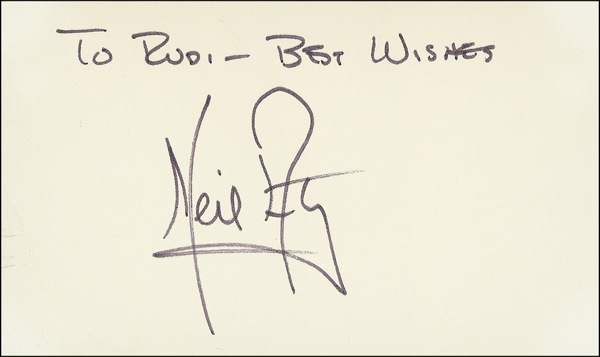 To Rudi – Best Wishes
Neil